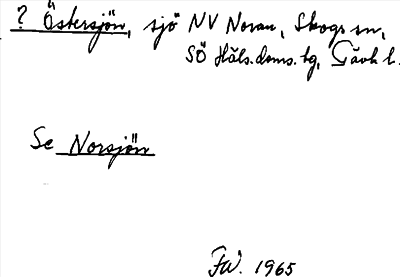 ? Östersjön, sjö NV Noran, Skogs sn,
SÖ Häls. doms. tg, Gävl. l.
Se Norsjön
FW. 1965